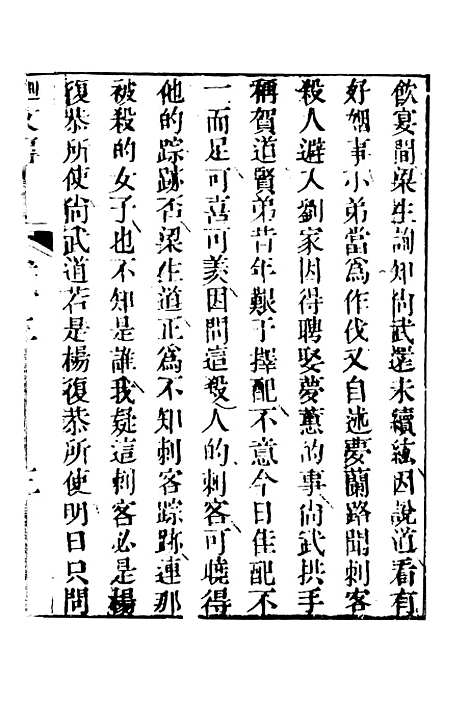 飲宴間梁生詢知尚武還未續絃因說道看有
好姻事小弟當為作伐又自述夢蘭路聞刺客
殺人避入劉家因得聘娶夢蕙的事尚武拱手
稱賀道賢弟昔年艱于擇配不意今日佳配不
一而足可喜可羨因問這殺人的刺客可曉得
他的踪跡否梁生道正為不知刺客踪跡連那
被殺的女子也不知是誰我疑這刺客必是楊
復恭所使尚武道若是楊復恭所使明日只問